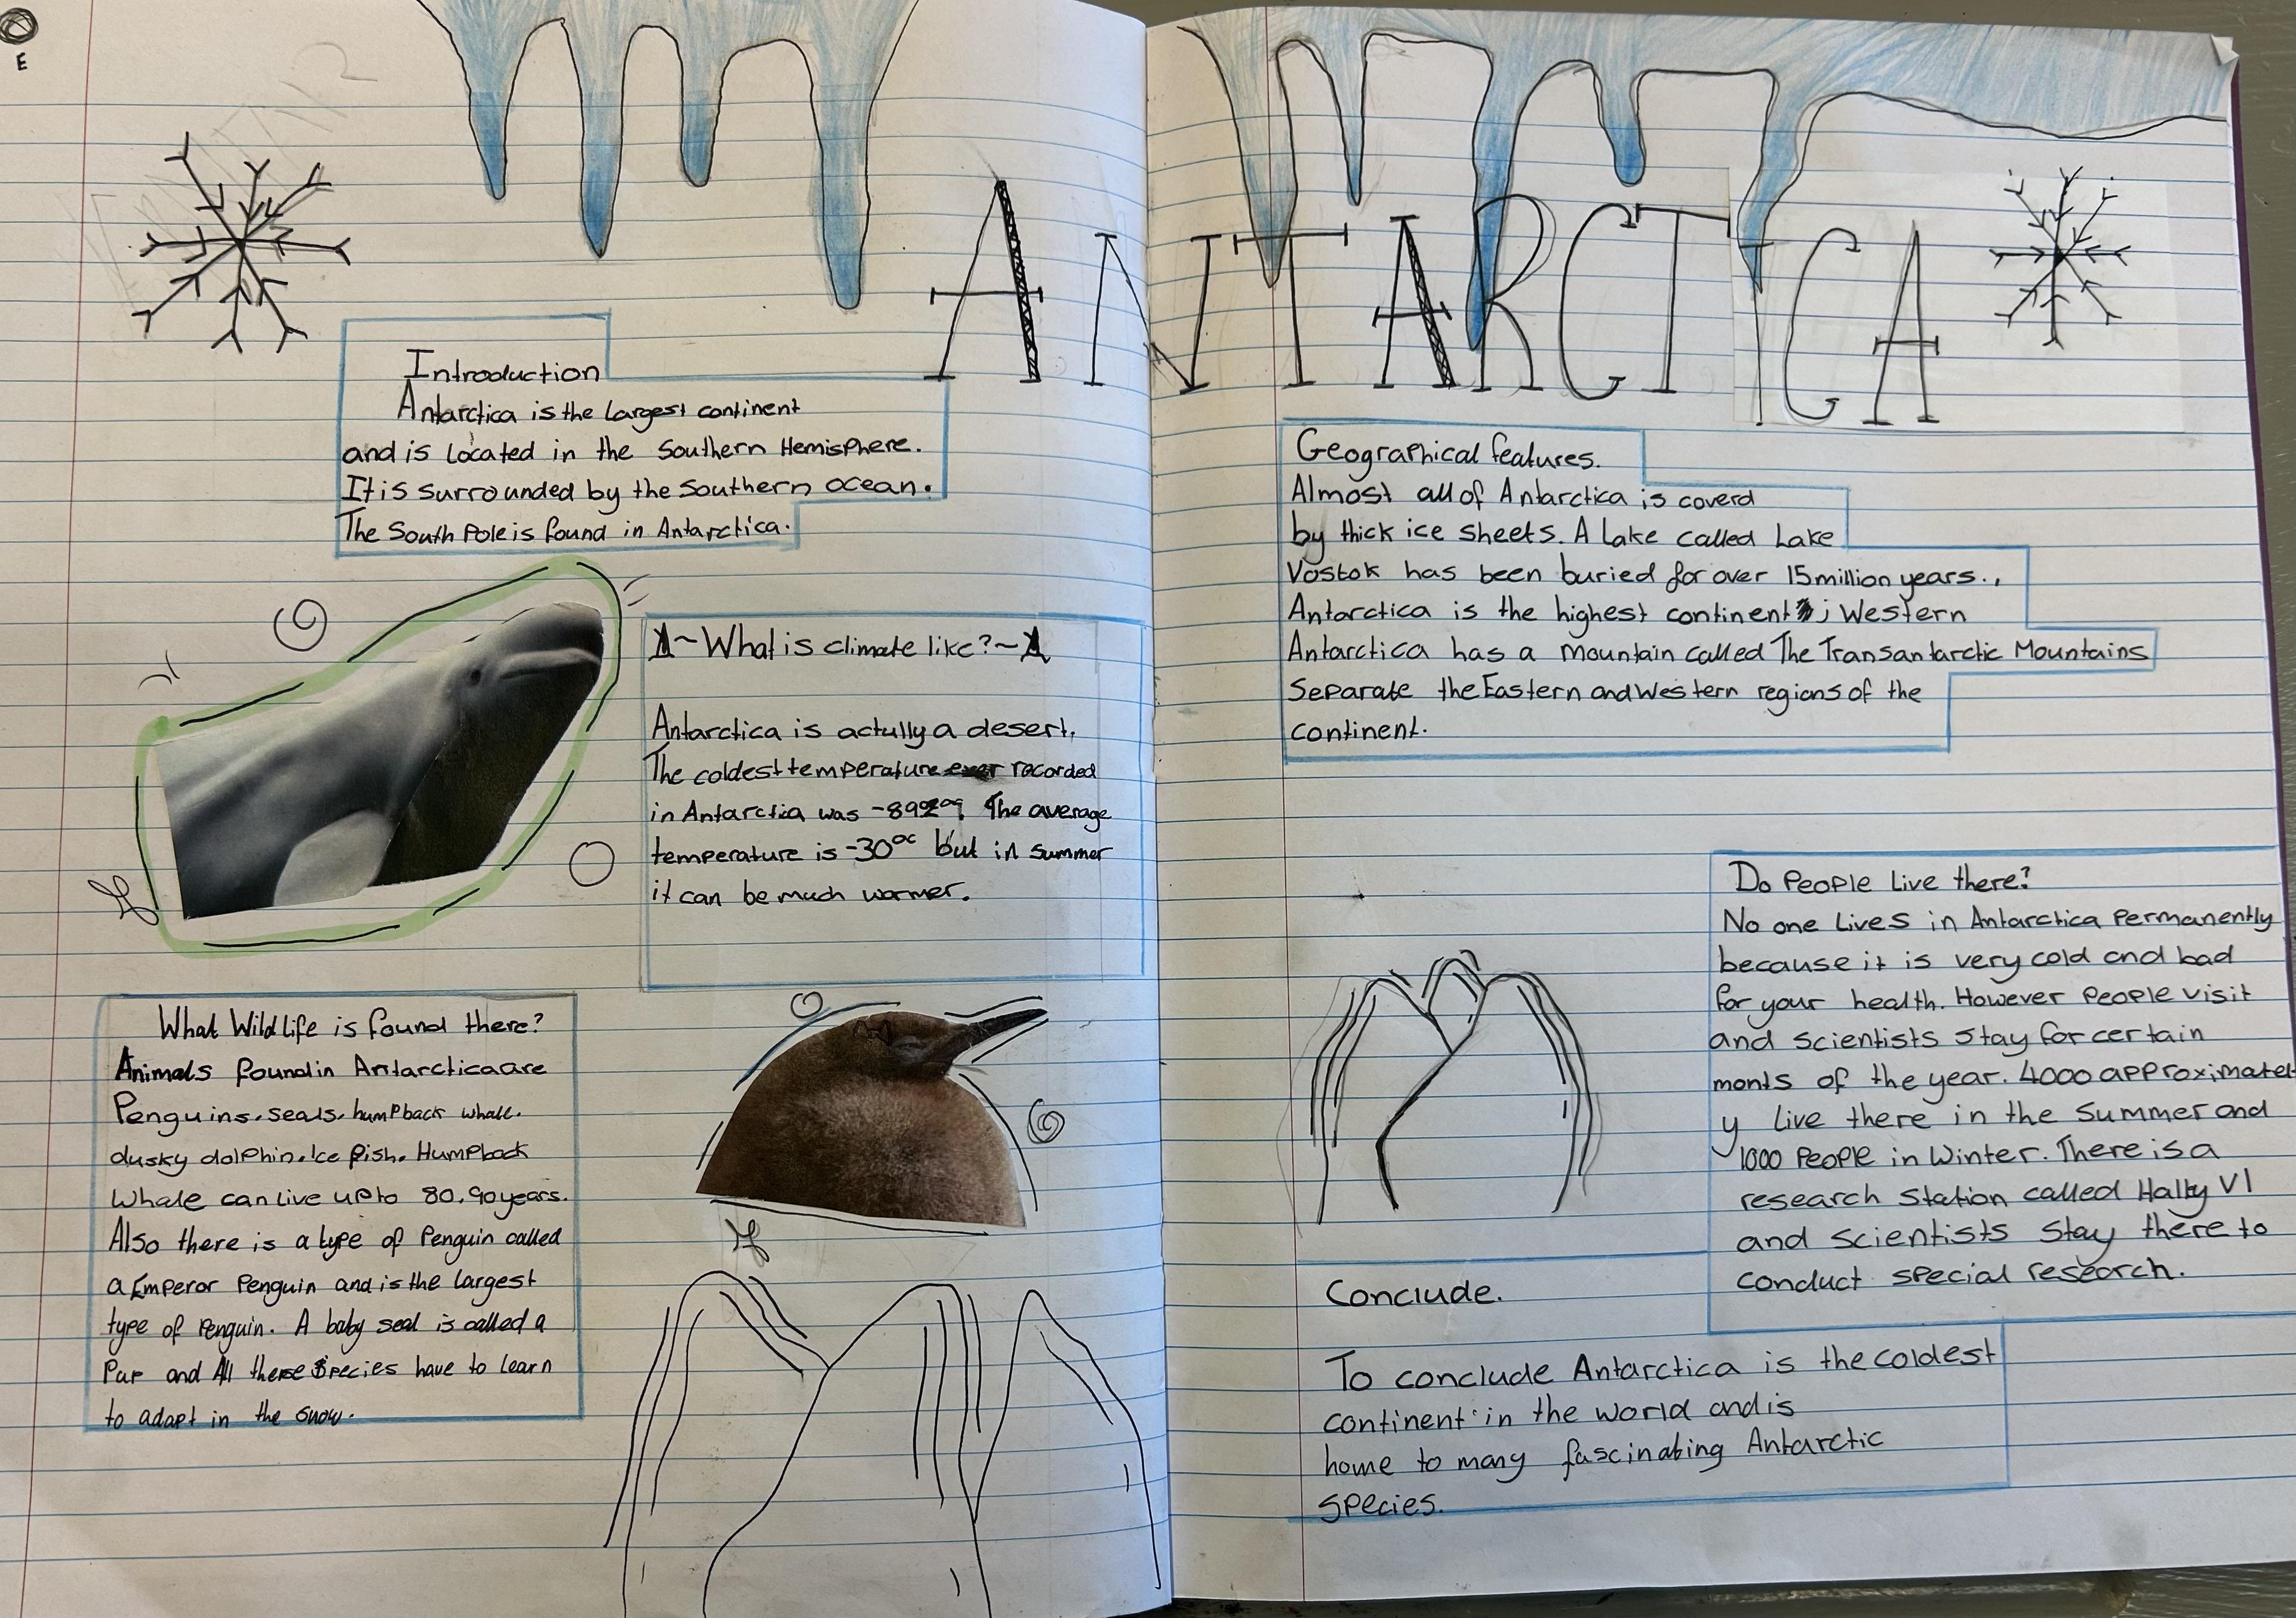 E
ANTARCTICA
Introduction
Antarctica is the largest continent
and is located in the Southern Hemisphere.
It is surrounded by the Southern ocean.
The South Pole is found in Antarctica.
~What is climate like?~
Antarctica is actully a desert.
The coldest temperature recorded
in Antarctia was The average
temperature is -30°c but in summer
it can be much warmer.
What Wildlife is found there?
Animals found in Antarctica are
Penguins. seals. humpback whale.
dusky dolphin. Ice fish. Humpback
Whale can live up to 80,90 years.
Also there is a type of Penguin called
a Emperor Penguin and is the largest
type of Penguin. A baby seal is called a
Pup and All these Species have to learn
to adapt in the snow.
Geographical features.
Almost all of Antarctica is coverd
by thick ice sheets. A Lake called Lake
Vostok has been buried for over 15 million years.,
Antarctica is the highest continent; Western
Antarctica has a mountain called The Transantarctic Mountains
Separate the Eastern and Western regions of the
continent.
Do People Live there?
No one Lives in Antarctica Permanently
because it is very cold and bad
for your health. However People visit
and scientists stay for certain
monts of the year. 4000 approximatel
y live there in the Summer and
1000 People in Winter. There is a
research station called Hally VI
and scientists stay there to
conduct special research.
Conclude.
To conclude Antarctica is the coldest
continent in the world and is
home to many fascinating Antarctic
species.